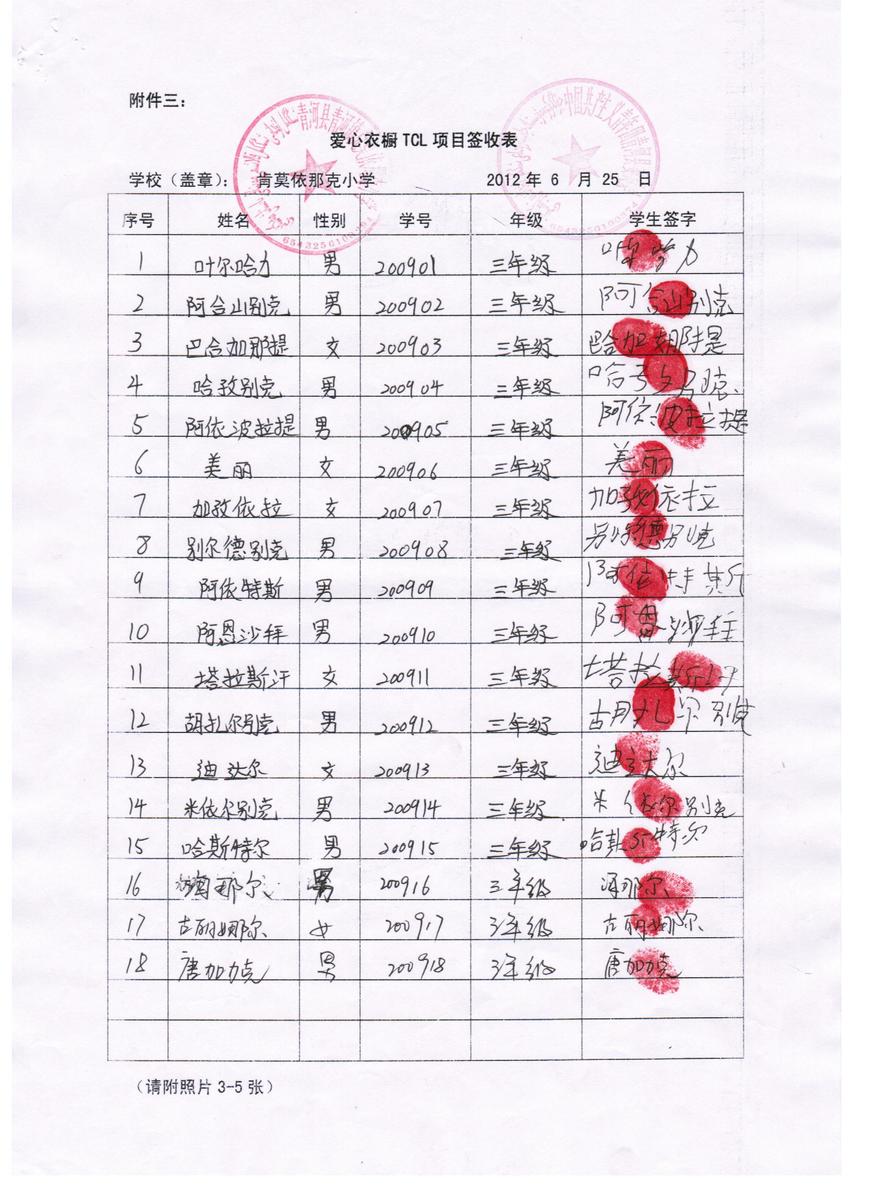 附件三：
爱心衣橱 TCL 项目签收表
学校（盖章）： 肯莫依那克小学 2012 年 6 月 25 日
序号 姓名 性别 学号 年级 学生签字
1 叶尔哈力 男 200901 三年级
2 阿合山别克 男 200902 三年级 阿合山别克
3 巴合加那提 女 200903 三年级
4 哈孜别克 男 200904 三年级
5 阿依波拉提 男 200905 三年级 阿依波拉提
6 美丽 女 200906 三年级 美丽
7 加孜依拉 女 200907 三年级 加孜依拉
8 别尔德别克 男 200908 三年级
9 阿依特斯 男 200909 三年级 阿依特斯
10 阿恩沙拜 男 200910 三年级
11 塔拉斯汗 女 200911 三年级 塔拉斯汗
12 胡扎尔别克 男 200912 三年级 胡扎尔别克
13 迪达尔 女 200913 三年级 迪达尔
14 米依尔别克 男 200914 三年级 米依尔别克
15 哈斯特尔 男 200915 三年级 哈斯特尔
16 男 200916 三年级
17 古丽娜尔 女 200917 三年级 古丽娜尔
18 唐加力克 男 200918 三年级 唐加力克
（请附照片 3-5 张）